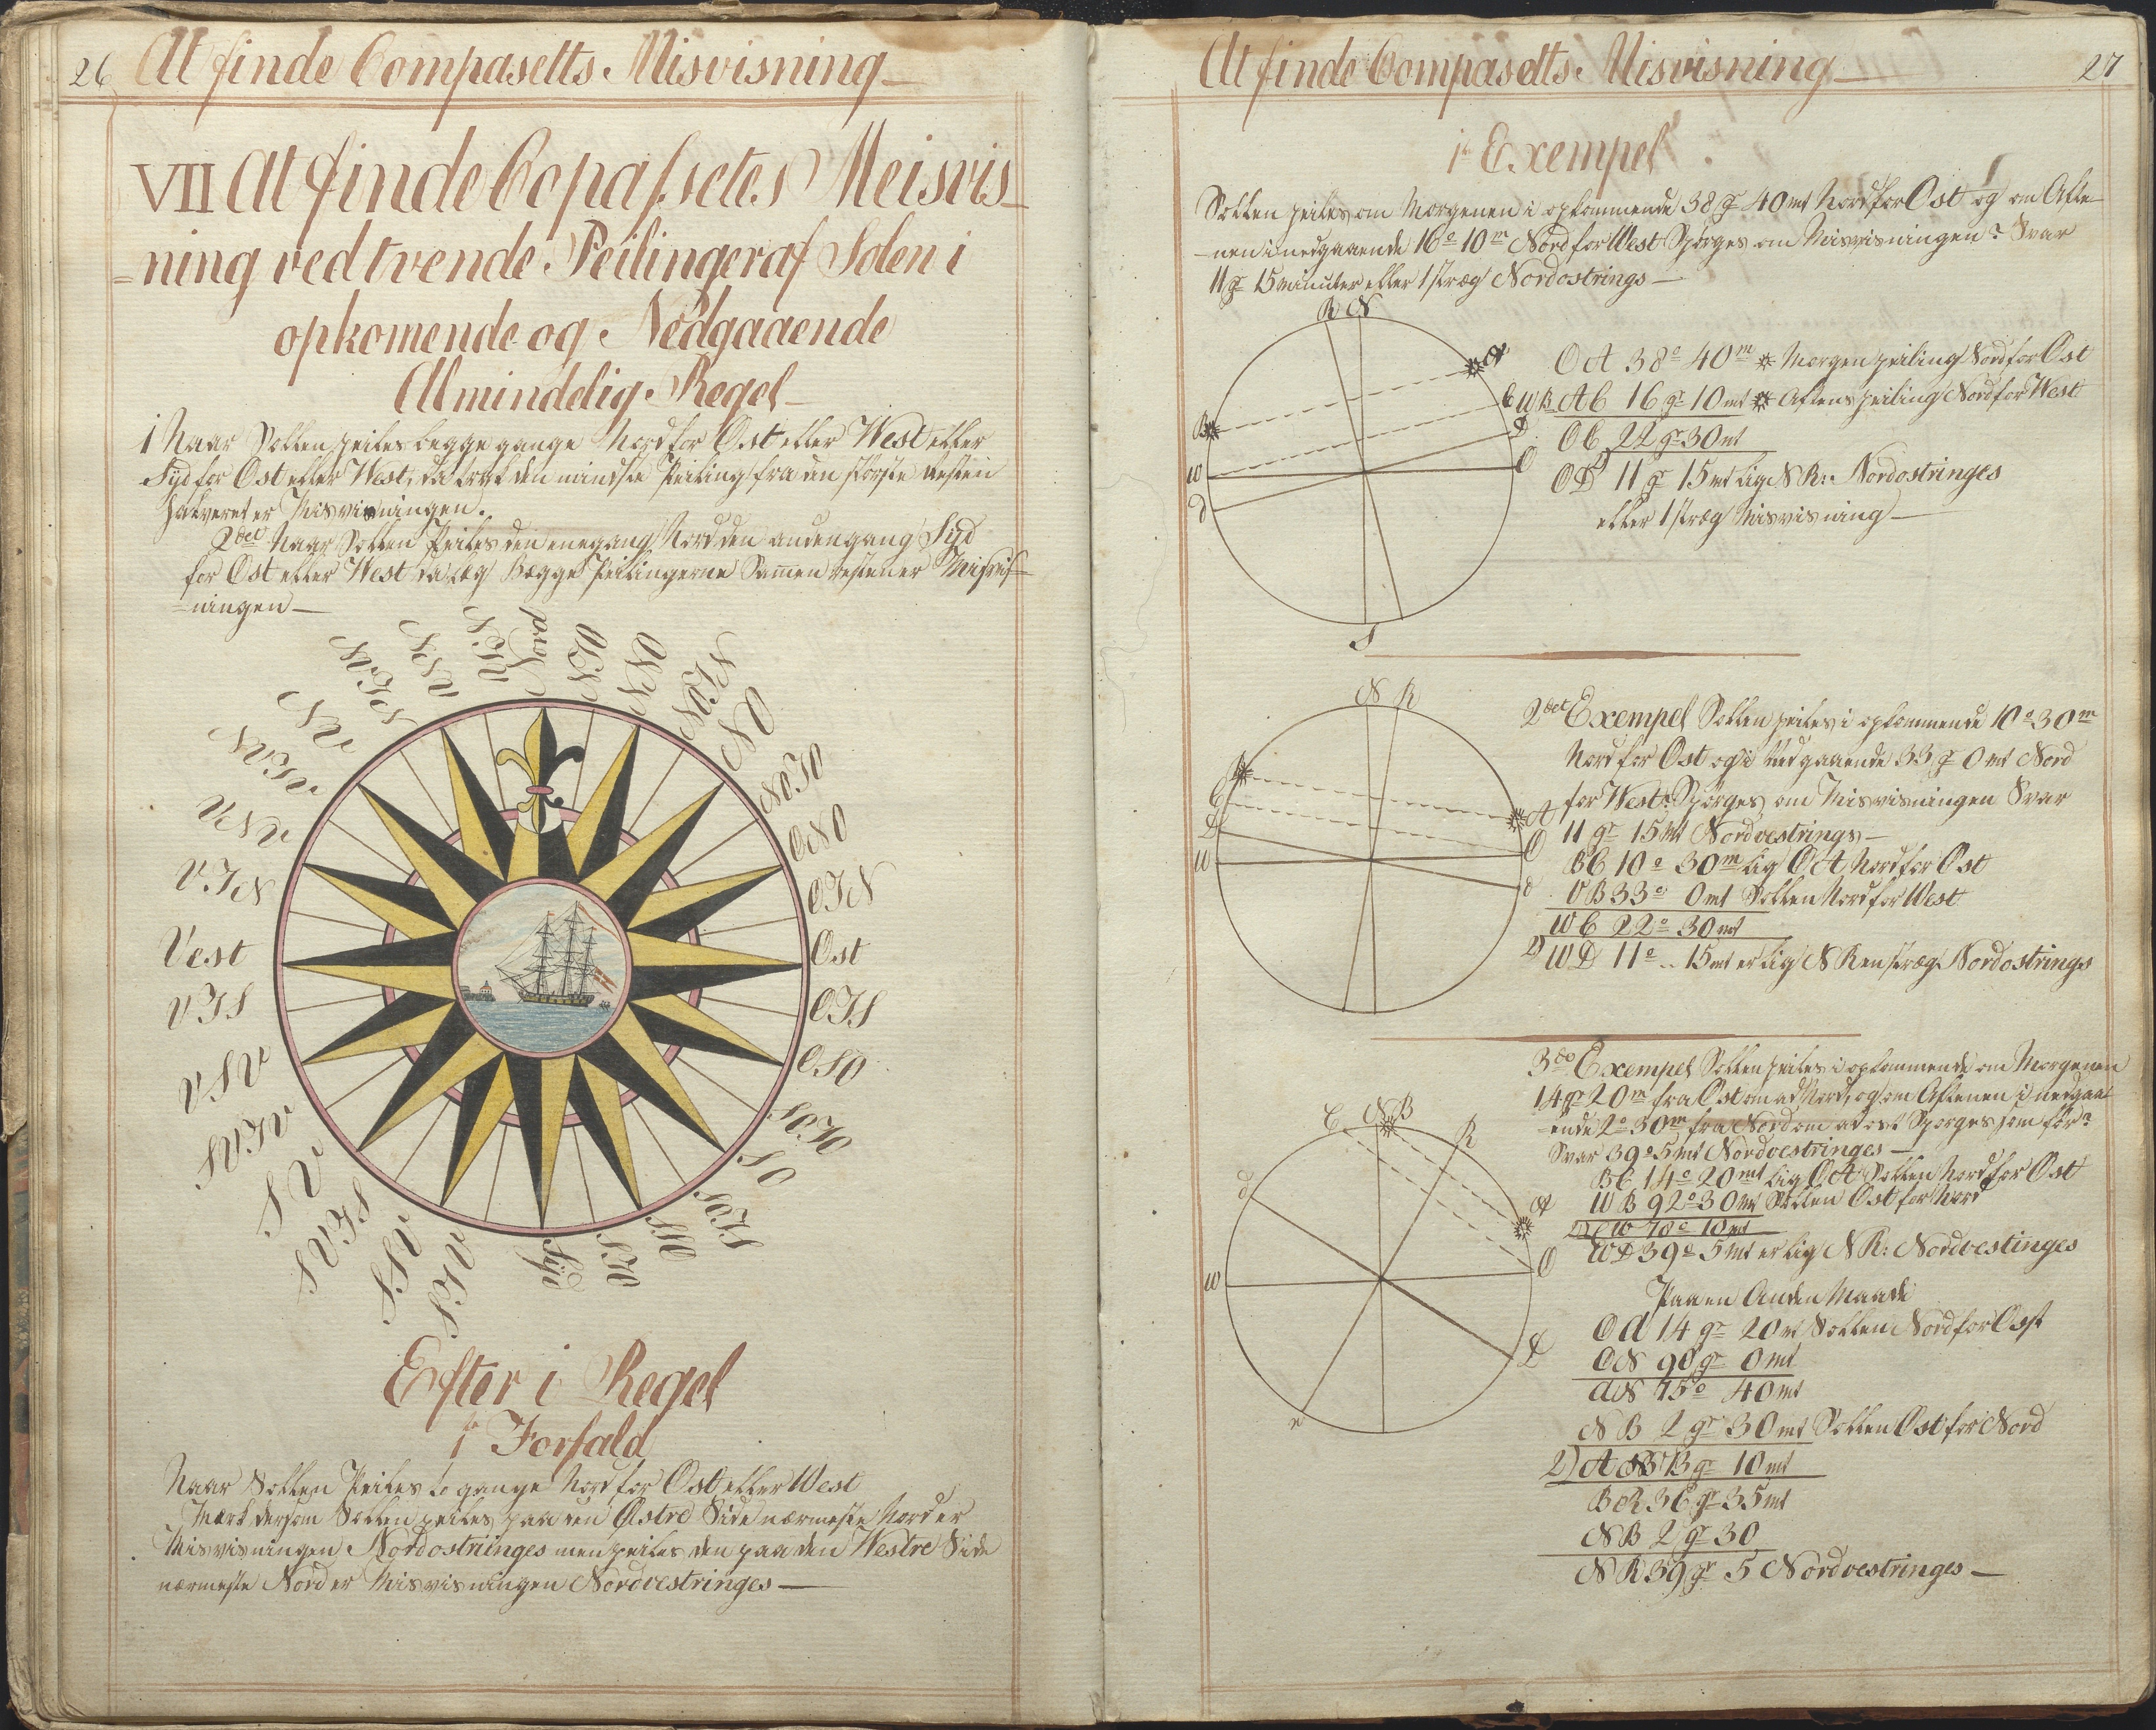 26 At finde Compasetts Misvisning
VII At finde Copassetes Meisvis
=ning ved tvende Peilinger af Solen i
opkomende og Nedgaaende
Almindelig Regel
1 Naar Sollen peiles begge gange Nord for Ost eller West eller
Syd for Ost eller West, da træk den mindste Peiling fra den største resten
halveret er Misvisningen.
2det Naar Sollen Peiles den ene gang Nord den anden gang Syd
for Ost eller West da læg Begge Peilingerne Samen resten er Misvis=
=ningen
Nord
NTO
NNO
NOTN
NO
NOTO
ONO
OTN
Ost
OTS
OSO
SOTO
SO
SOTS
SSO
STO
Syd
STV
SSV
SVTS
SV
SVTV
VSV
VTS
Vest
VTN
VNV
NVTV
NV
NVTN
NNV
NTV
Efter 1 Regel
1te Forfald
Naar Sollen Peiles to gange Nord for Ost eller West
Mærk dersom Sollen peiles paa den Østre Side nærmeste Nord er
Misvisningen Nordostriinges men peiles den paa den Westre Side
nærmeste Nord er Misvisningen Nordvestringes
At finde Compasetts Misvisning 27
1te Exempel
Sollen peiles om Morgenen i opkommende 38 gr 40 mt Nord for Ost og om Afte
-nen i nedgaaende 16° 10m Nord for West Spørges om Misvisningen? Svar
11 gr 15 minuter eller 1 stræg Nordostrings
R N
A
B
C
D
O
W
d
S
OA 38° 40m Morgen peiling Nord for Ost
WB AC 16 gr 10 mt Aftens peiling Nord for West
OC 22 gr 30 mt
OD 11 gr 15 mt lig NR: Nordostringes
eller 1 stræg Misvisning
N R
B
C
D
W
A
O
d
2det Exempel Sollen peiles i opkommende 10° 30m
Nord for Ost og i Nedgaaende 33 gr 0 mt Nord
for West? Spørges om Misvisningen Svar
11 gr 15 mt Nordvestrings
BC 10° 30m lig OA Nord for Ost
VB 33° 0 mt Sollen Nord for West
WC 22° 30 mt
2) WD 11° 15 mt er lig NR en stræg Nordostrings
C N B R
d
A
O
W
D
e
3de Exempel Sollen peiles i opkommende om Morgenen
14 gr 20m fra Ost om ad Nord, og om Aftenen i nedgaa
=ende 2° 30m fra Nord om ad ost Spørges som før?
Svar 39° 5 mt Nordvestringes
BC 14° 20 mt lig OA Sollen Nord for Ost
WB 92° 30 mt Sollen Ost for Nord
2) CW 78° 10 mt
WD 39° 5 mt er lig NR: Nordvestinges
Paa en Anden Maade
Od 14 gr 20 mt Sollen Nord for Ost
ON 90 gr 0 mt
AN 75° 40 mt
NB 2 gr 30 mt Sollen Ost for Nord
2) A B gr 10 mt
BR 36 gr 35 mt
NB 2 gr 30
NR 39 gr 5 Nordvestringes